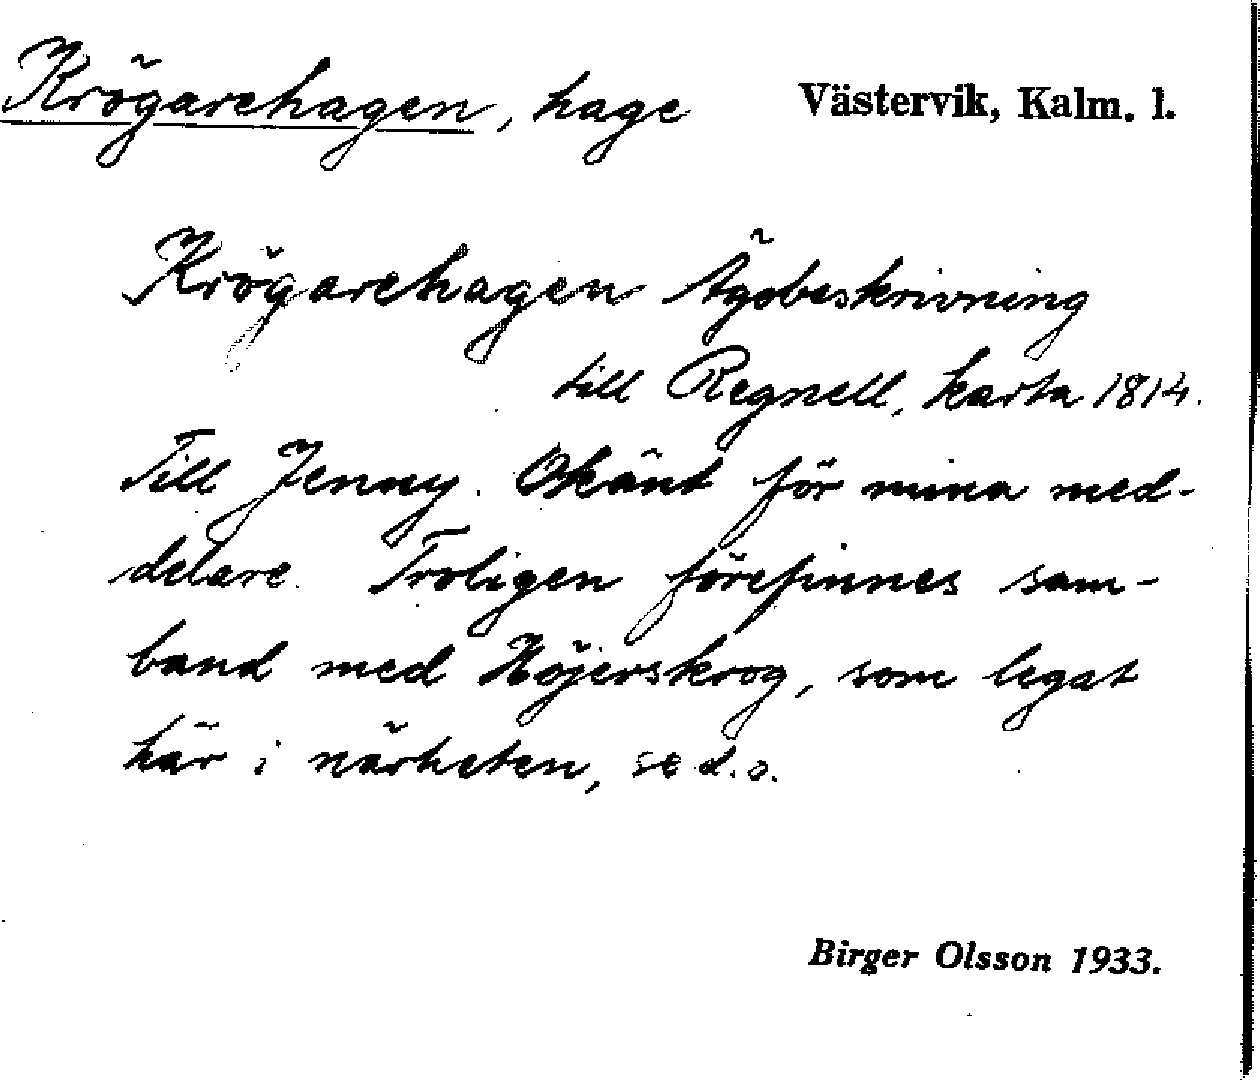 Krögarehagen, hage Västervik, Kalm. l.
Krögarehagen Ägobeskrivning
till Regnell, karta 1814.
Till Jenny. Okänt för mina med-
delare. Troligen förefinnes sam-
band med Höjerskrog, som legat
här i närheten, se d. o.
Birger Olsson 1933.